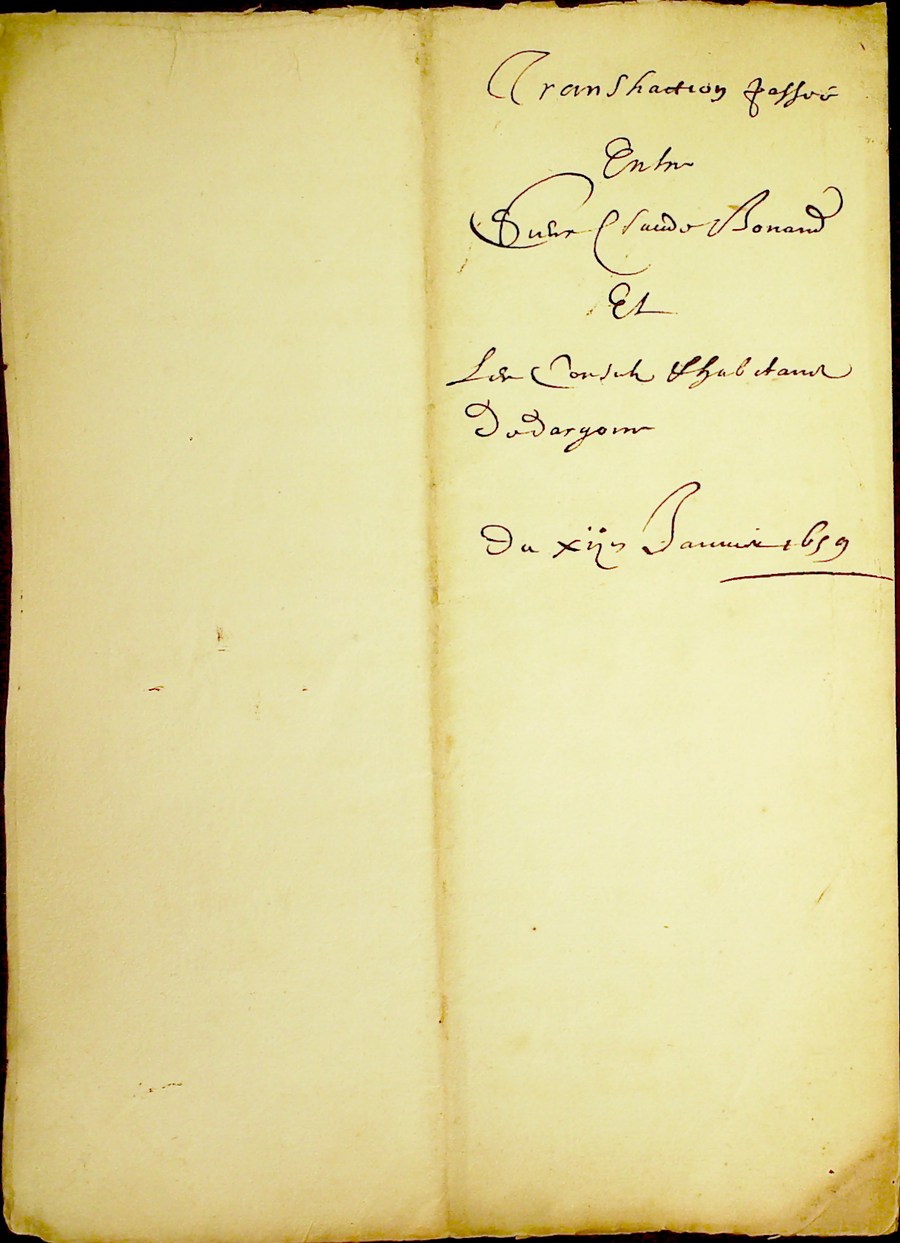 Transhaction passeé
Entre
Claude Bonard
Et
Les Consulz & habitans
De dargoire
Du xije Januier 1659